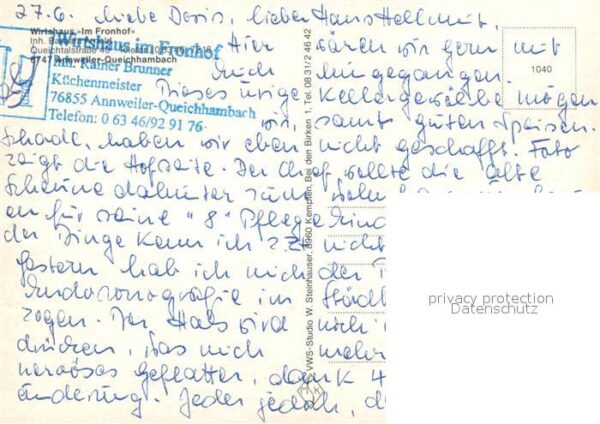 27.6. Liebe Doris, lieber Hans Hellmut,
Wirtshaus »Im Fronhof«
Inh.
Queichtalstraße 46 Telefon (0 63 46) 72 18
6747 Annweiler-Queichhambach
Wirtshaus im Fronhof
Inh. Rainer Brunner
Küchenmeister
76855 Annweiler-Queichhambach
Telefon: 0 63 46/92 91 76
1040
Hier wären wir gern mit
Euch hingegangen.
Dieses urige Kellergewölbe mögen
wir, samt guten Speisen.
Schade, haben wir eben nicht geschafft. Foto
zeigt die Hofseite. Der Chef wollte die alte
Scheune dahinter zum
en für seine "8" Pflegekind
der Dinge kann ich z.Zt. nicht
gestern hab ich mich der
Endosonografie im Städt
zogen. Der Hals wird noch
drücken, was mich mehr
nervöses Geflatter, dank 4
änderung. Jeder jedoch, d
VWS-Studio W. Steinhauser, 8960 Kempten, Bei den Birken 1, Tel. 08 31/2 46 42
privacy protection
Datenschutz